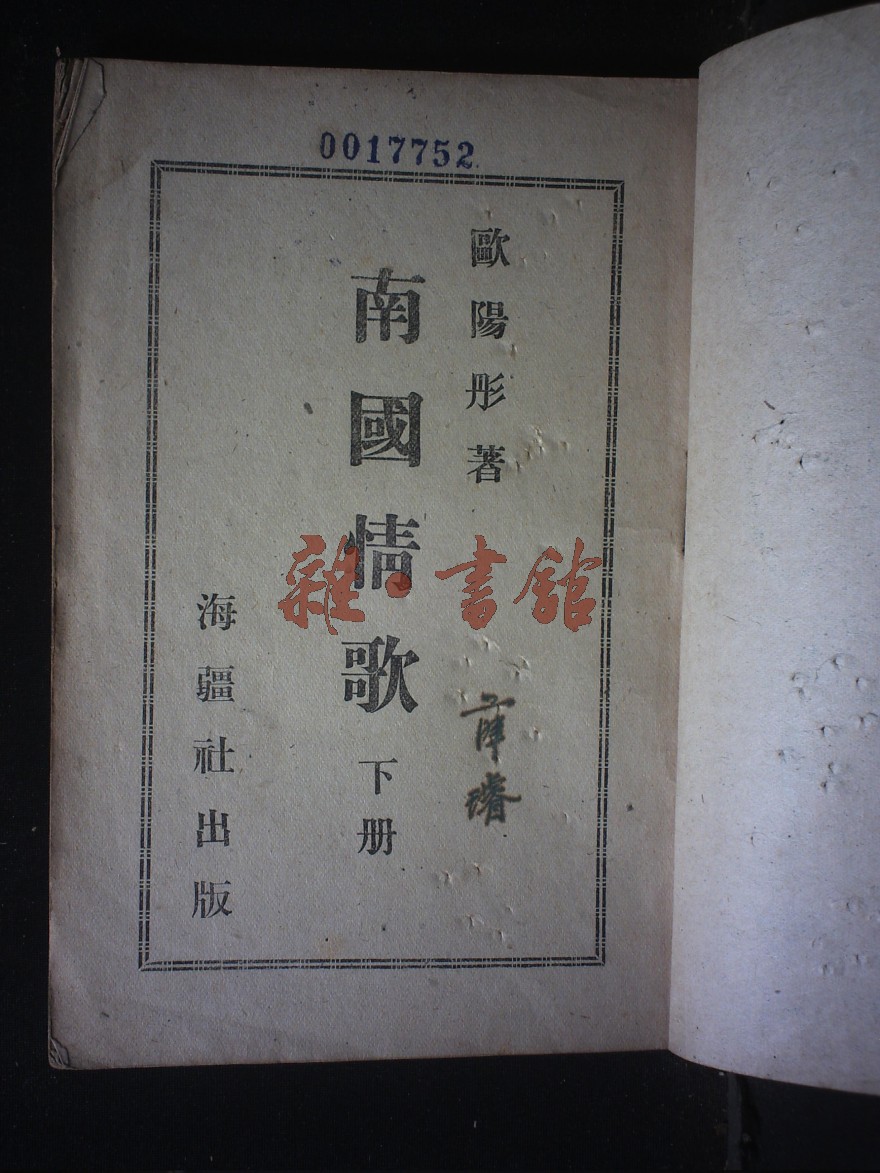 0017752
歐陽彤著
南國情歌 下册
海疆社出版
薛璿
雜·書館